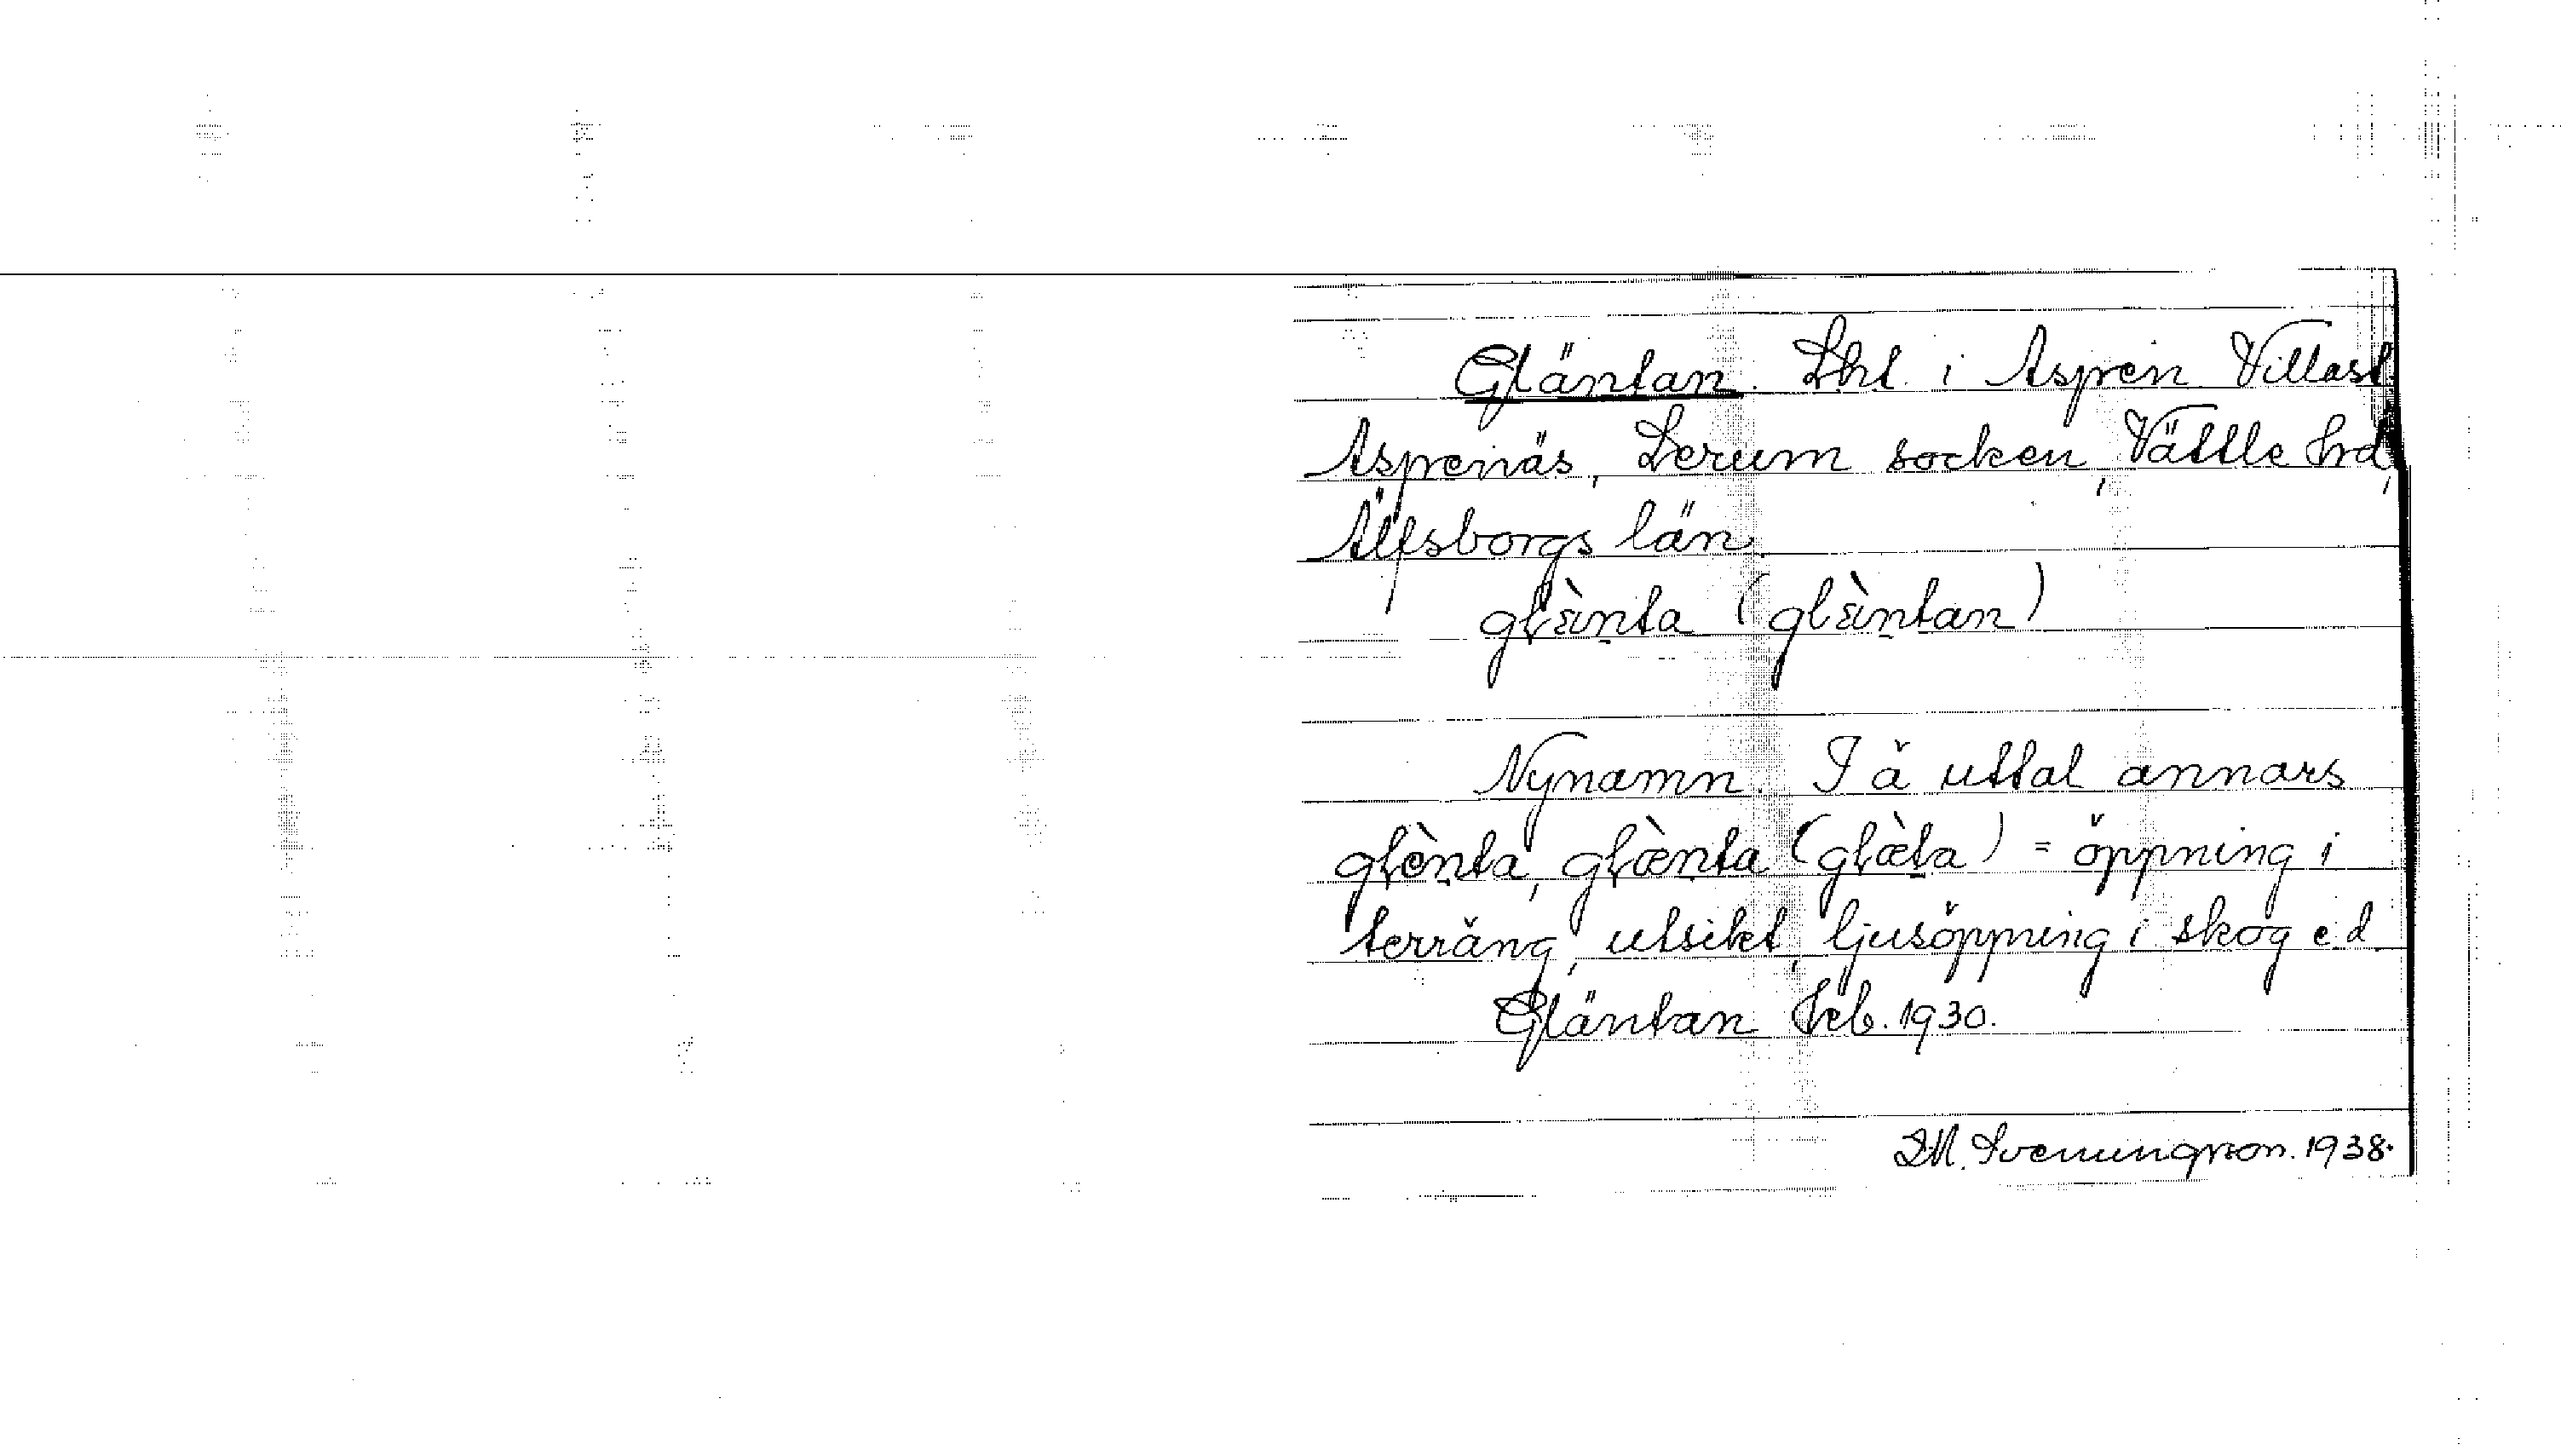 Gläntan. Lht. i Aspen Villast.
Aspenäs, Lerum socken, Vättle hd,
Älfsborgs län.
glänta (gläntan)
Nynamn. I ä uttal annars
glènta, glænta (glæta) = öppning i
terräng, utsikt, ljusöppning i skog e.d.
Gläntan Feb. 1930.
D.M. Svenungsson. 1938.